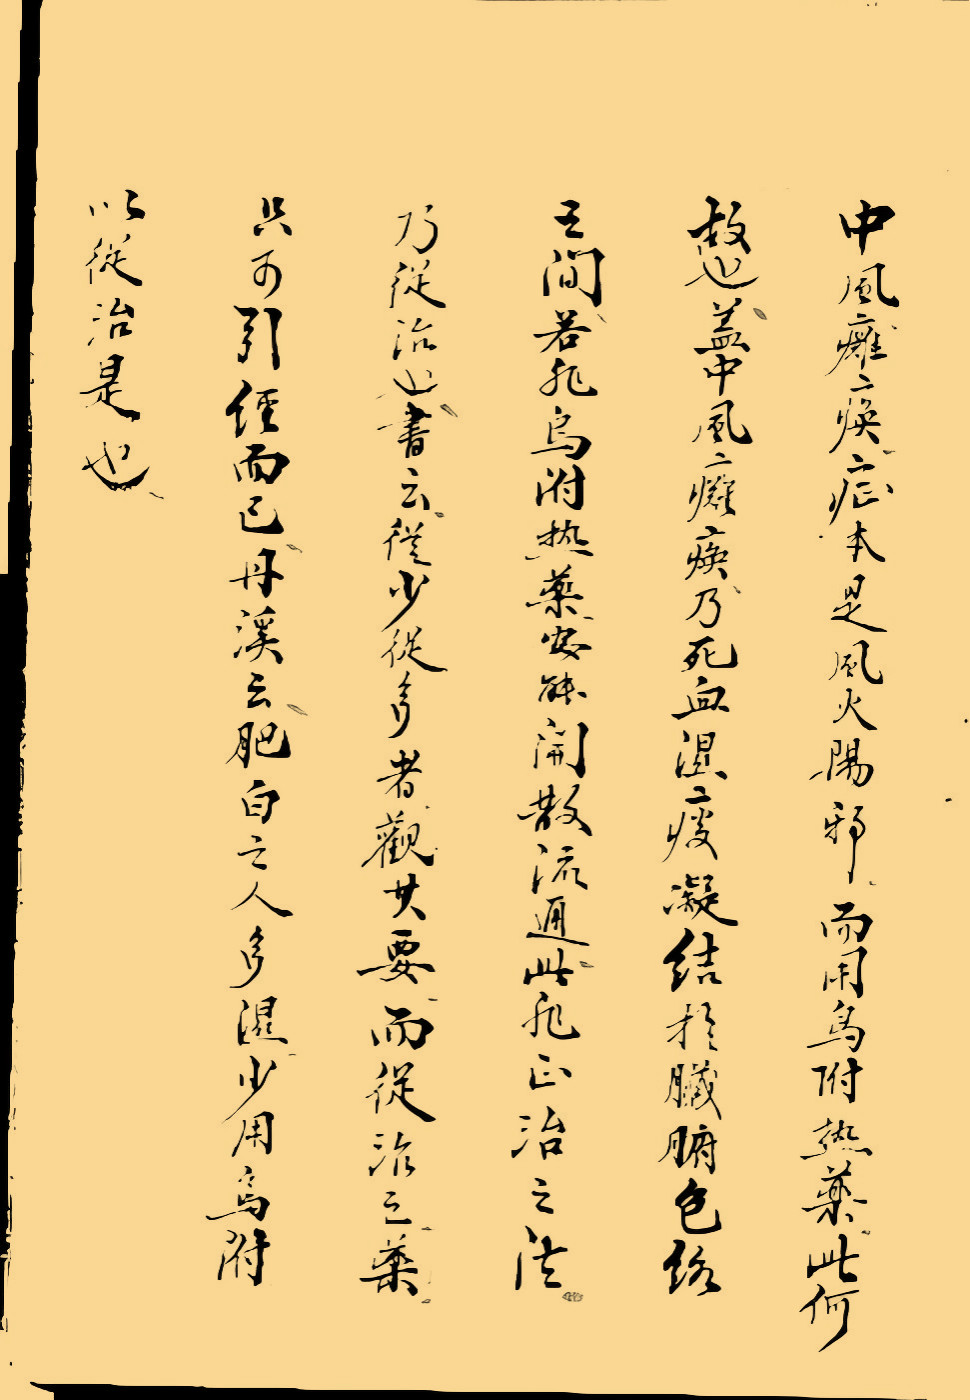 中風癱瘓症本是風火陽邪而用烏附熱藥此何
故也蓋中風癱瘓乃死血濕痰凝結於臟腑包絡
之間若非烏附热藥安能開散流通此非正治之法
乃從治也書云從少從多者觀其要而從治之藥
只可引經而已丹溪云肥白之人多濕少用烏附
以從治是也